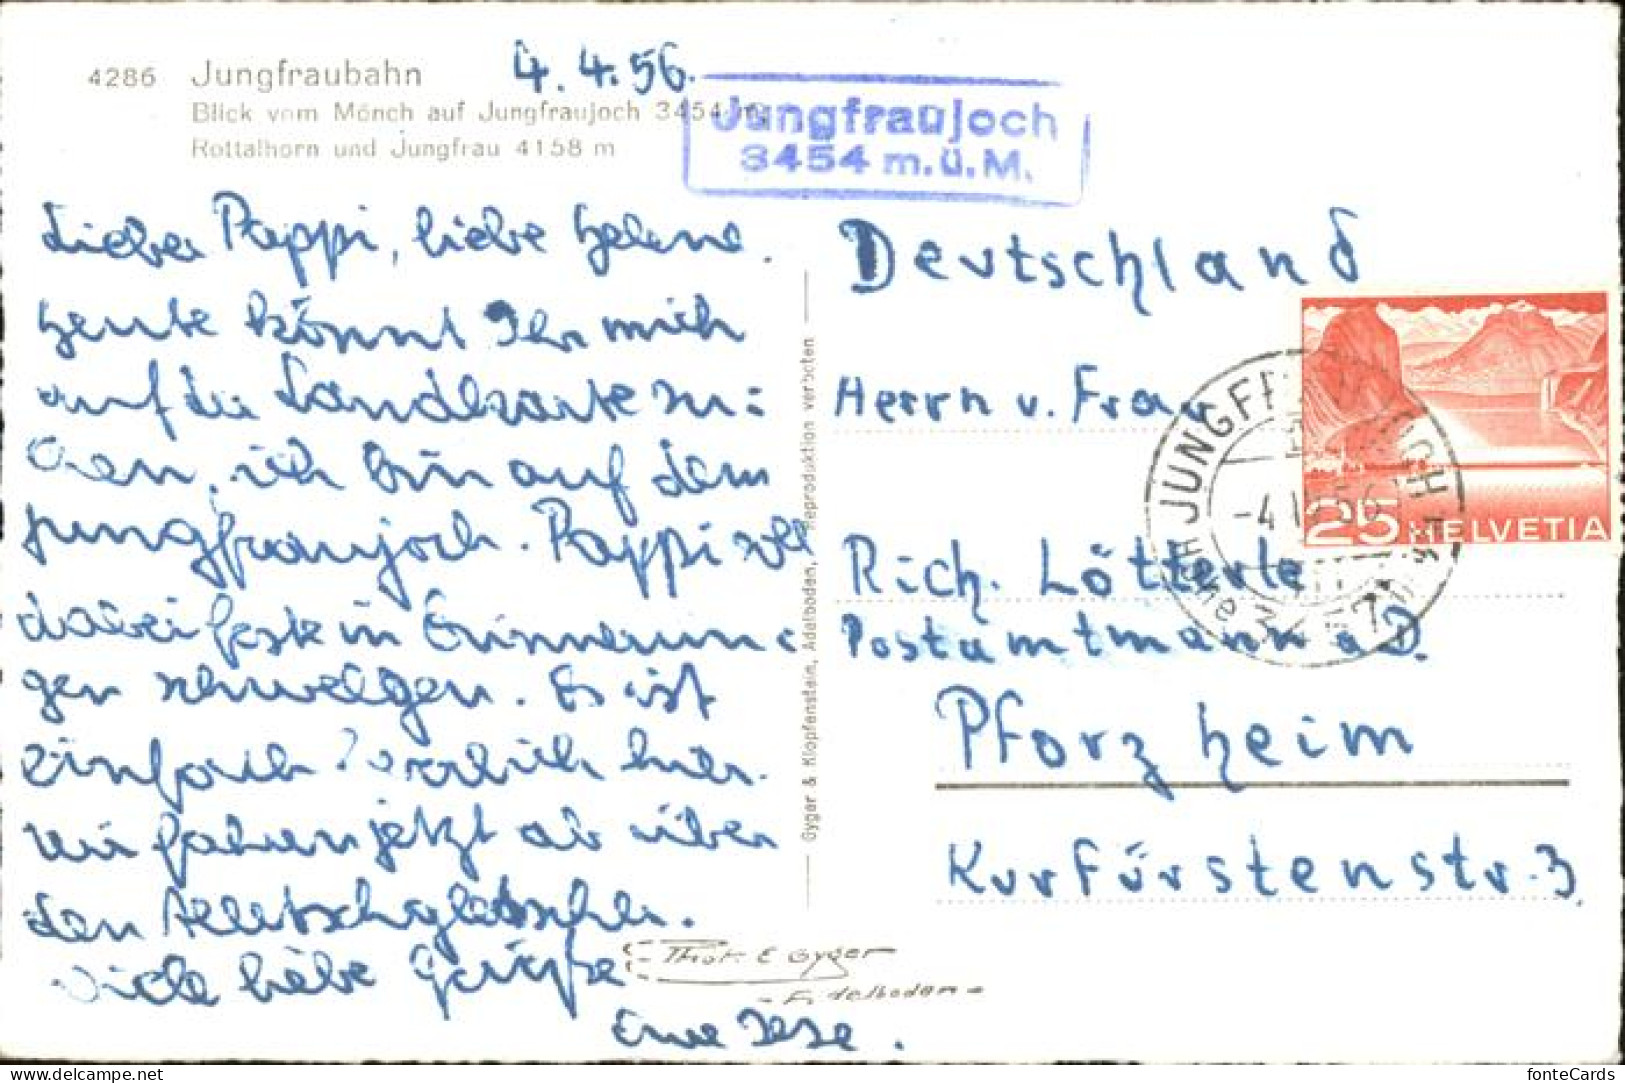 4286 Jungfraubahn
Blick vom Mönch auf Jungfraujoch 3454 m
Rottalhorn und Jungfrau 4158 m
4.4.56.
Jungfraujoch
3454 m.ü.M.
Lieber Pappi, liebe Helene.
Heute könnt Ihr mich
auf der Landkarte su=
chen, ich bin auf dem
Jungfraujoch. Pappi soll
dabei feste in Erinnerun=
gen schwelgen. Es ist
einfach herrlich hier.
Wir fahren jetzt ab über
den Aletschgletscher.
Viele liebe Grüße
Eure
Gyger & Klopfenstein, Adelboden, Reproduktion verboten
Phot. E Gyger
- Adelboden -
Deutschland
Herrn u. Frau
Rich. Lötterle
Postamtmann a D.
Pforzheim
Kurfürstenstr. 3.
25 HELVETIA
JUNGFRAUJOCH
-4.IV.56
delcampe.net
fonteCards